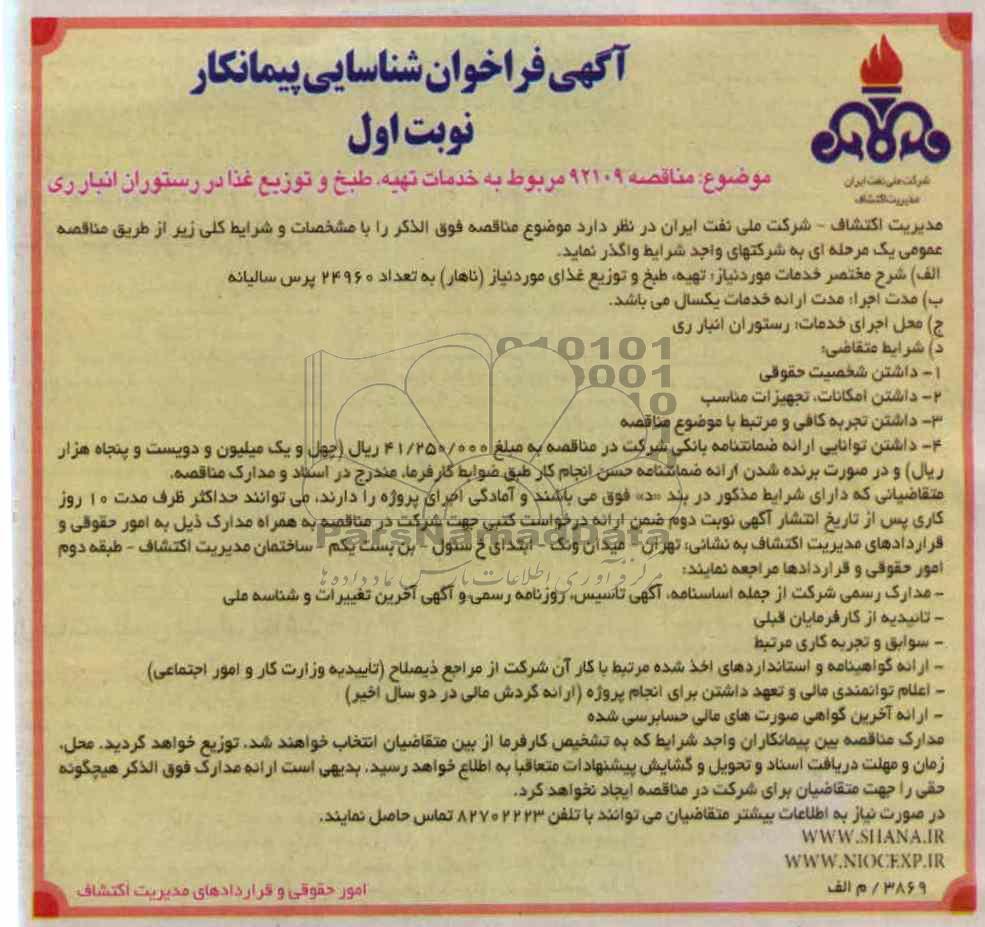 آگهی فراخوان شناسایی پیمانکار
نوبت اول
شرکت ملی نفت ایران
مدیریت اکتشاف
موضوع: مناقصه ۹۲۱۰۹ مربوط به خدمات تهیه، طبخ و توزیع غذا در رستوران انبار ری
مدیریت اکتشاف - شرکت ملی نفت ایران در نظر دارد موضوع مناقصه فوق الذکر را با مشخصات و شرایط کلی زیر از طریق مناقصه
عمومی یک مرحله ای به شرکتهای واجد شرایط واگذر نماید.
الف) شرح مختصر خدمات موردنیاز: تهیه، طبخ و توزیع غذای موردنیاز (ناهار) به تعداد ۲۴۹۶۰ پرس سالیانه
ب) مدت اجرا: مدت ارائه خدمات یکسال می باشد.
ج) محل اجرای خدمات: رستوران انبار ری
د) شرایط متقاضی:
۱- داشتن شخصیت حقوقی
۲- داشتن امکانات، تجهیزات مناسب
۳- داشتن تجربه کافی و مرتبط با موضوع مناقصه
۴- داشتن توانایی ارائه ضمانتنامه بانکی شرکت در مناقصه به مبلغ ۴۱/۲۵۰/۰۰۰ ریال (چهل و یک میلیون و دویست و پنجاه هزار
ریال) و در صورت برنده شدن ارائه ضمانتنامه حسن انجام کار طبق ضوابط کارفرما، مندرج در اسناد و مدارک مناقصه.
متقاضیانی که دارای شرایط مذکور در بند «د» فوق می باشند و آمادگی اجرای پروژه را دارند، می توانند حداکثر ظرف مدت ۱۰ روز
کاری پس از تاریخ انتشار آگهی نوبت دوم ضمن ارائه درخواست کتبی جهت شرکت در مناقصه به همراه مدارک ذیل به امور حقوقی و
قراردادهای مدیریت اکتشاف به نشانی: تهران- میدان ونک - ابتدای خ سئول - بن بست یکم - ساختمان مدیریت اکتشاف - طبقه دوم
امور حقوقی و قراردادها مراجعه نمایند:
- مدارک رسمی شرکت از جمله اساسنامه، آگهی تأسیس، روزنامه رسمی و آگهی آخرین تغییرات و شناسه ملی
- تائیدیه از کارفرمایان قبلی
- سوابق و تجربه کاری مرتبط
- ارائه گواهینامه و استانداردهای اخذ شده مرتبط با کار آن شرکت از مراجع ذیصلاح (تاییدیه وزارت کار و امور اجتماعی)
- اعلام توانمندی مالی و تعهد داشتن برای انجام پروژه (ارائه گردش مالی در دو سال اخیر)
- ارائه آخرین گواهی صورت های مالی حسابرسی شده
مدارک مناقصه بین پیمانکاران واجد شرایط که به تشخیص کارفرما از بین متقاضیان انتخاب خواهند شد، توزیع خواهد گردید. محل،
زمان و مهلت دریافت اسناد و تحویل و گشایش پیشنهادات متعاقبا به اطلاع خواهد رسید. بدیهی است ارائه مدارک فوق الذکر هیچگونه
حقی را جهت متقاضیان برای شرکت در مناقصه ایجاد نخواهد کرد.
در صورت نیاز به اطلاعات بیشتر متقاضیان می توانند با تلفن ۸۲۷۰۲۲۲۳ تماس حاصل نمایند.
WWW.SHANA.IR
WWW.NIOCEXP.IR
۳۸۶۹/ م الف
امور حقوقی و قراردادهای مدیریت اکتشاف
ParsNamadData
مرکز فرآوری اطلاعات پارس نماد داده ها